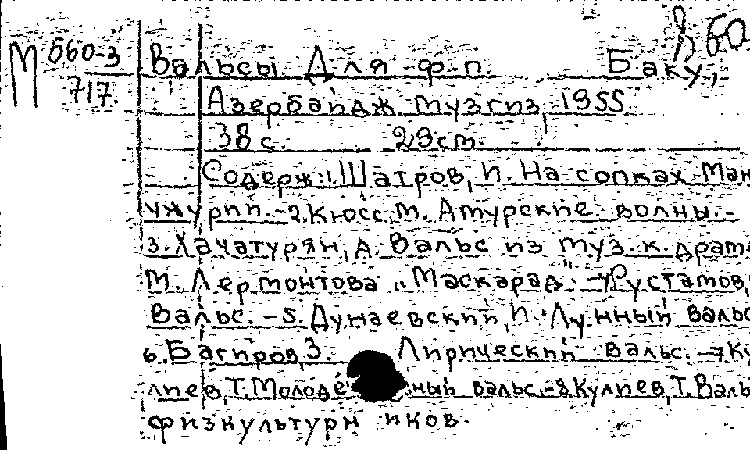 М 660-3
717
860
Вальсы для ф-п. Баку,
Азербайдж. музгиз, 1955.
38 с. 29 см.
Содерж: 1. Шатров, И. На сопках Ман
чжурии. - 2. Кюсс, М. Амурские волны. -
3. Хачатурян, А. Вальс из муз. к драме
М. Лермонтова "Маскарад". - 4. Рустамов,
Вальс. - 5. Дунаевский, И. Лунный вальс
6. Багиров, З. Лирический вальс. - 7. Ку
лиев, Т. Молодёжный вальс. - 8. Кулиев, Т. Валь
физкультурников.